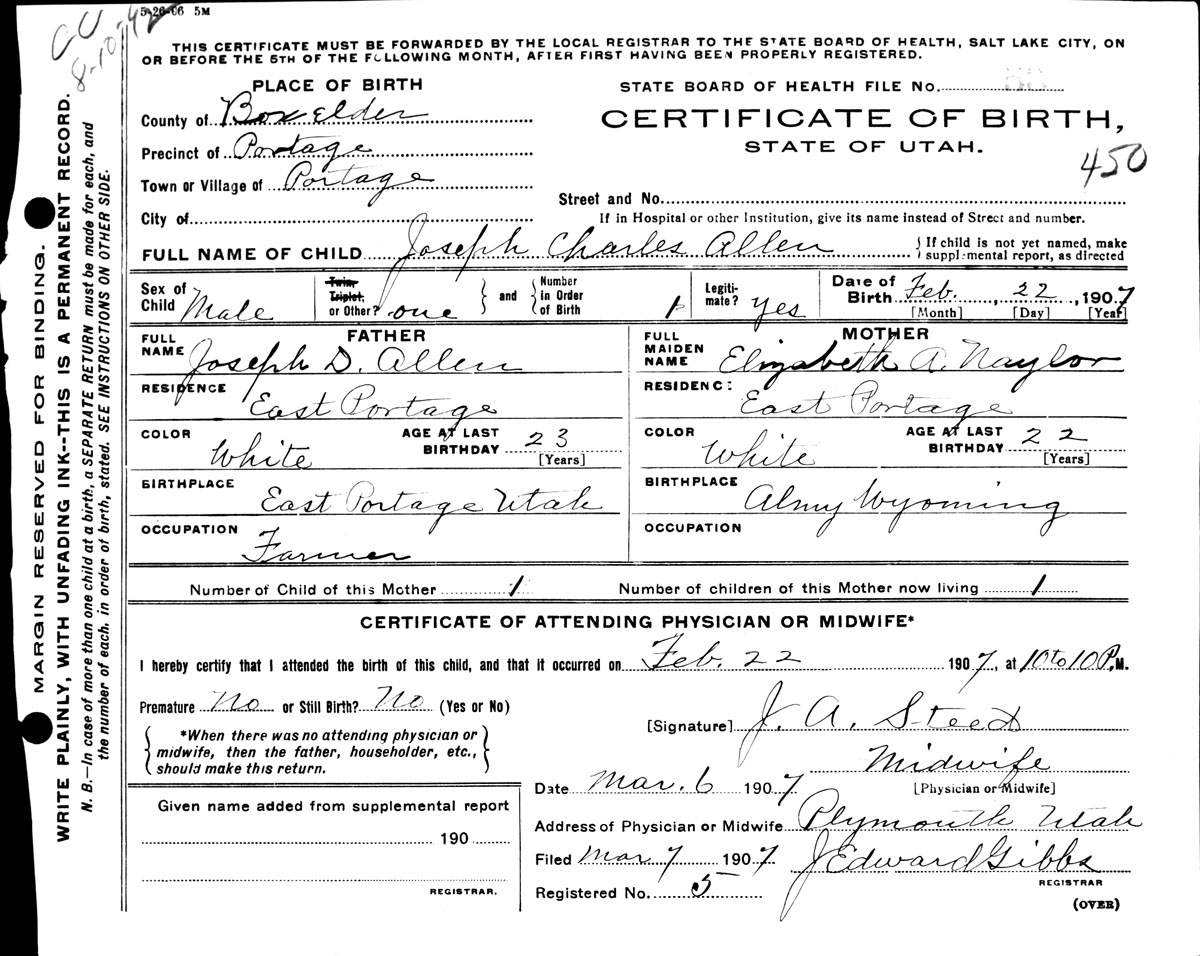 5-26-06 5M
CU
8-10-42
THIS CERTIFICATE MUST BE FORWARDED BY THE LOCAL REGISTRAR TO THE STATE BOARD OF HEALTH, SALT LAKE CITY, ON
OR BEFORE THE 5TH OF THE FOLLOWING MONTH, AFTER FIRST HAVING BEEN PROPERLY REGISTERED.
MARGIN RESERVED FOR BINDING.
WRITE PLAINLY, WITH UNFADING INK--THIS IS A PERMANENT RECORD.
N. B.—In case of more than one child at a birth, a SEPARATE RETURN must be made for each, and
the number of each, in order of birth, stated. SEE INSTRUCTIONS ON OTHER SIDE.
PLACE OF BIRTH
County of Box elder
Precinct of Portage
Town or Village of Portage
City of
STATE BOARD OF HEALTH FILE No.
CERTIFICATE OF BIRTH,
STATE OF UTAH.
450
Street and No.
If in Hospital or other Institution, give its name instead of Street and number.
FULL NAME OF CHILD Joseph Charles Allen } If child is not yet named, make
supplemental report, as directed
Sex of Child Male
Twin, Triplet, or Other? one } and { Number in Order of Birth 1
Legitimate? Yes
Date of Birth Feb. , 22 , 1907
[Month] [Day] [Year]
FATHER
FULL NAME Joseph D. Allen
RESIDENCE East Portage
COLOR White AGE AT LAST BIRTHDAY 23 [Years]
BIRTHPLACE East Portage Utah
OCCUPATION Farmer
MOTHER
FULL MAIDEN NAME Elizabeth A. Naylor
RESIDENCE East Portage
COLOR White AGE AT LAST BIRTHDAY 22 [Years]
BIRTHPLACE Almy Wyoming
OCCUPATION
Number of Child of this Mother 1 Number of children of this Mother now living 1
CERTIFICATE OF ATTENDING PHYSICIAN OR MIDWIFE*
I hereby certify that I attended the birth of this child, and that it occurred on Feb. 22 1907, at 10 to 10 P.M.
Premature No or Still Birth? No (Yes or No)
*When there was no attending physician or
midwife, then the father, householder, etc.,
should make this return.
[Signature] J. A. Steed
Midwife
[Physician or Midwife]
Date Mar. 6 1907
Address of Physician or Midwife Plymouth Utah
Filed Mar 7 1907 J Edward Gibbs
REGISTRAR
Registered No. 5
(OVER)
Given name added from supplemental report
190
REGISTRAR.